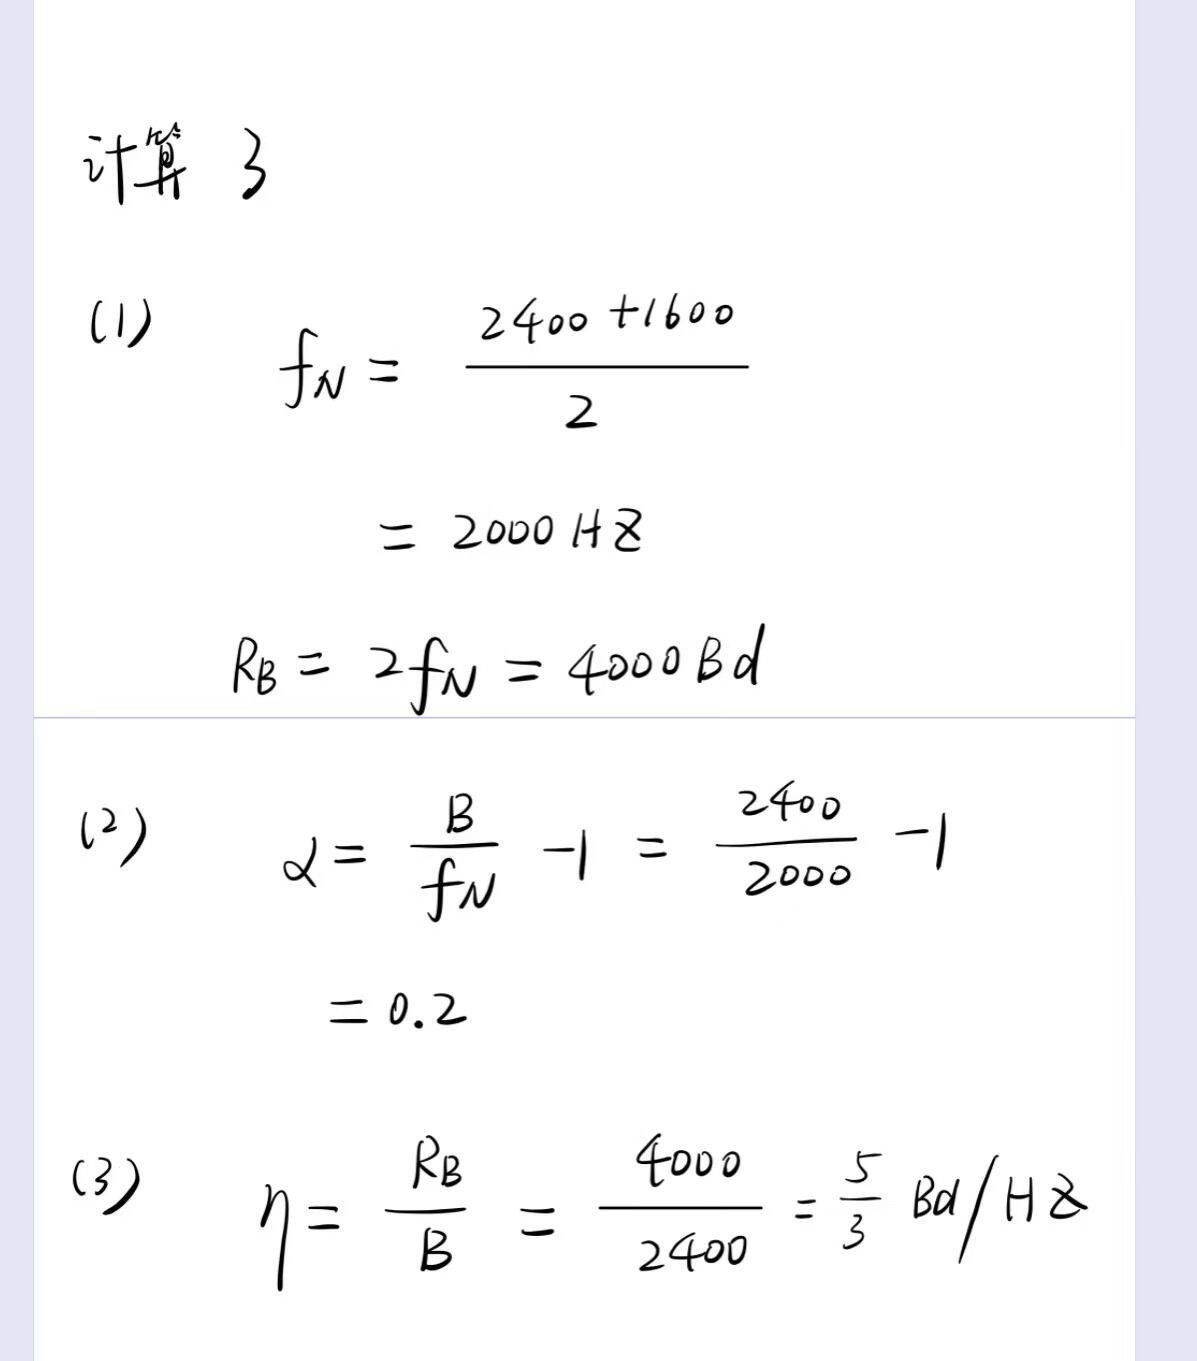 计算 3
(1) fN = (2400+1600)/2
= 2000 HZ
RB = 2fN = 4000 Bd
(2) α = B/fN -1 = 2400/2000 -1
= 0.2
(3) η = RB/B = 4000/2400 = 5/3 Bd/HZ